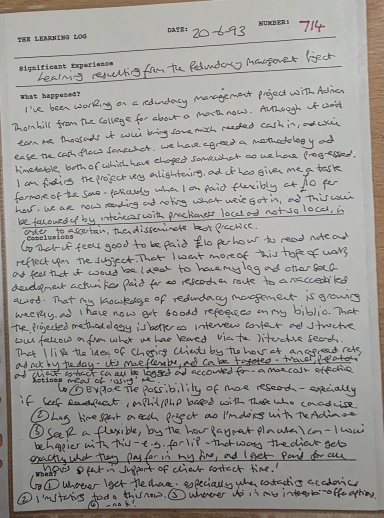 THE LEARNING LOG DATE: 20-6-93 NUMBER: 714
Significant Experience
Learning resulting from the Redundancy Management Project
What happened?
I've been working on a redundancy management project with Adrian
Thornhill from the College for about a month now. Although it won't
earn me thousands it will bring some much needed cash in, and will
ease the cash flow somewhat. We have agreed a methodology and
timetable, both of which have changed somewhat as we have progressed.
I am finding the project very enlightening, and it has given me a taste
for more of the same - particularly when I am paid flexibly at £10 per
hour. We are now reading and noting what we've got in, and this will
be followed by interviews with practitioners local and not so local, in
order to ascertain, then disseminate best practice.
Conclusions
That it feels good to be paid £10 per hour to read, note and
reflect upon the subject. That I want more of this type of work
and feel that it would be ideal to have my log and other self
development activities paid for as research en route to a
award. That my knowledge of redundancy management is growing
weekly, and I have now got 60 odd references on my biblio. That
the projected methodology is better as interview content and structure
will follow on from what we have learned via the literature search.
That I like the idea of charging clients by the hour at an agreed rate,
and not by the day - its more flexible, and can be
and client contact can all be logged and accounted for - a more cost effective
Actions
① Explore the possibility of more research - especially
if self development / MPhil/PhD based with those who can advise.
② Log time spent on each project as I'm doing with the Adrian one
③ Seek a flexible, by the hour payment plan when I can - I would
be happier with this - e.g. for - that way the client gets
exactly what they pay for in my time, and I get paid for all
hours spent in support of client contact time!
When?
① Whenever I get the chance, especially when contacting academics
② I'm trying to do this now. ③ Whenever it is my offer option.